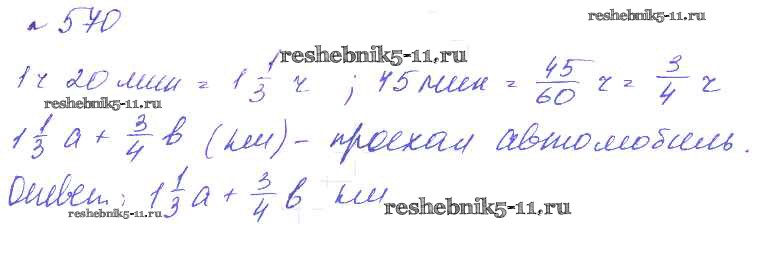 № 570
reshebnik5-11.ru
reshebnik5-11.ru
1 ч 20 мин = 1 1/3 ч ; 45 мин = 45/60 ч = 3/4 ч
reshebnik5-11.ru
1 1/3 a + 3/4 b (км) – проехал автомобиль.
Ответ: 1 1/3 a + 3/4 b км
reshebnik5-11.ru
reshebnik5-11.ru